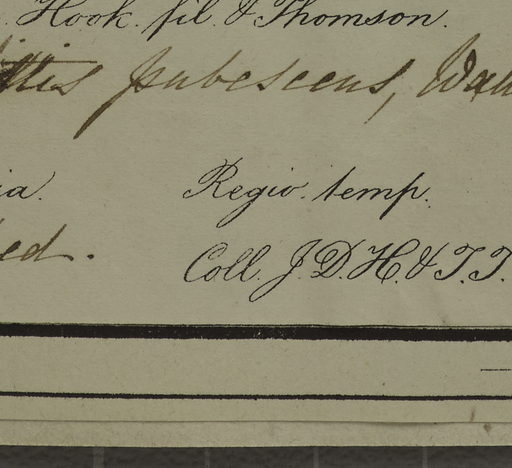 Hook. fil. & Thomson.
pubescens, Wall
ia. Regio. temp.
ed. Coll. J.D.H. & T.T.